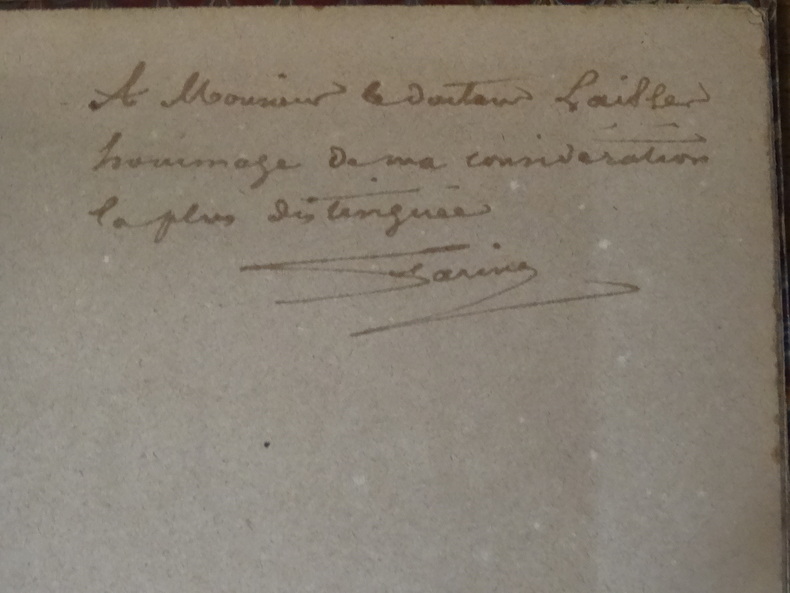 A Monsieur le docteur Lailler
hommage de ma considération
la plus distinguée